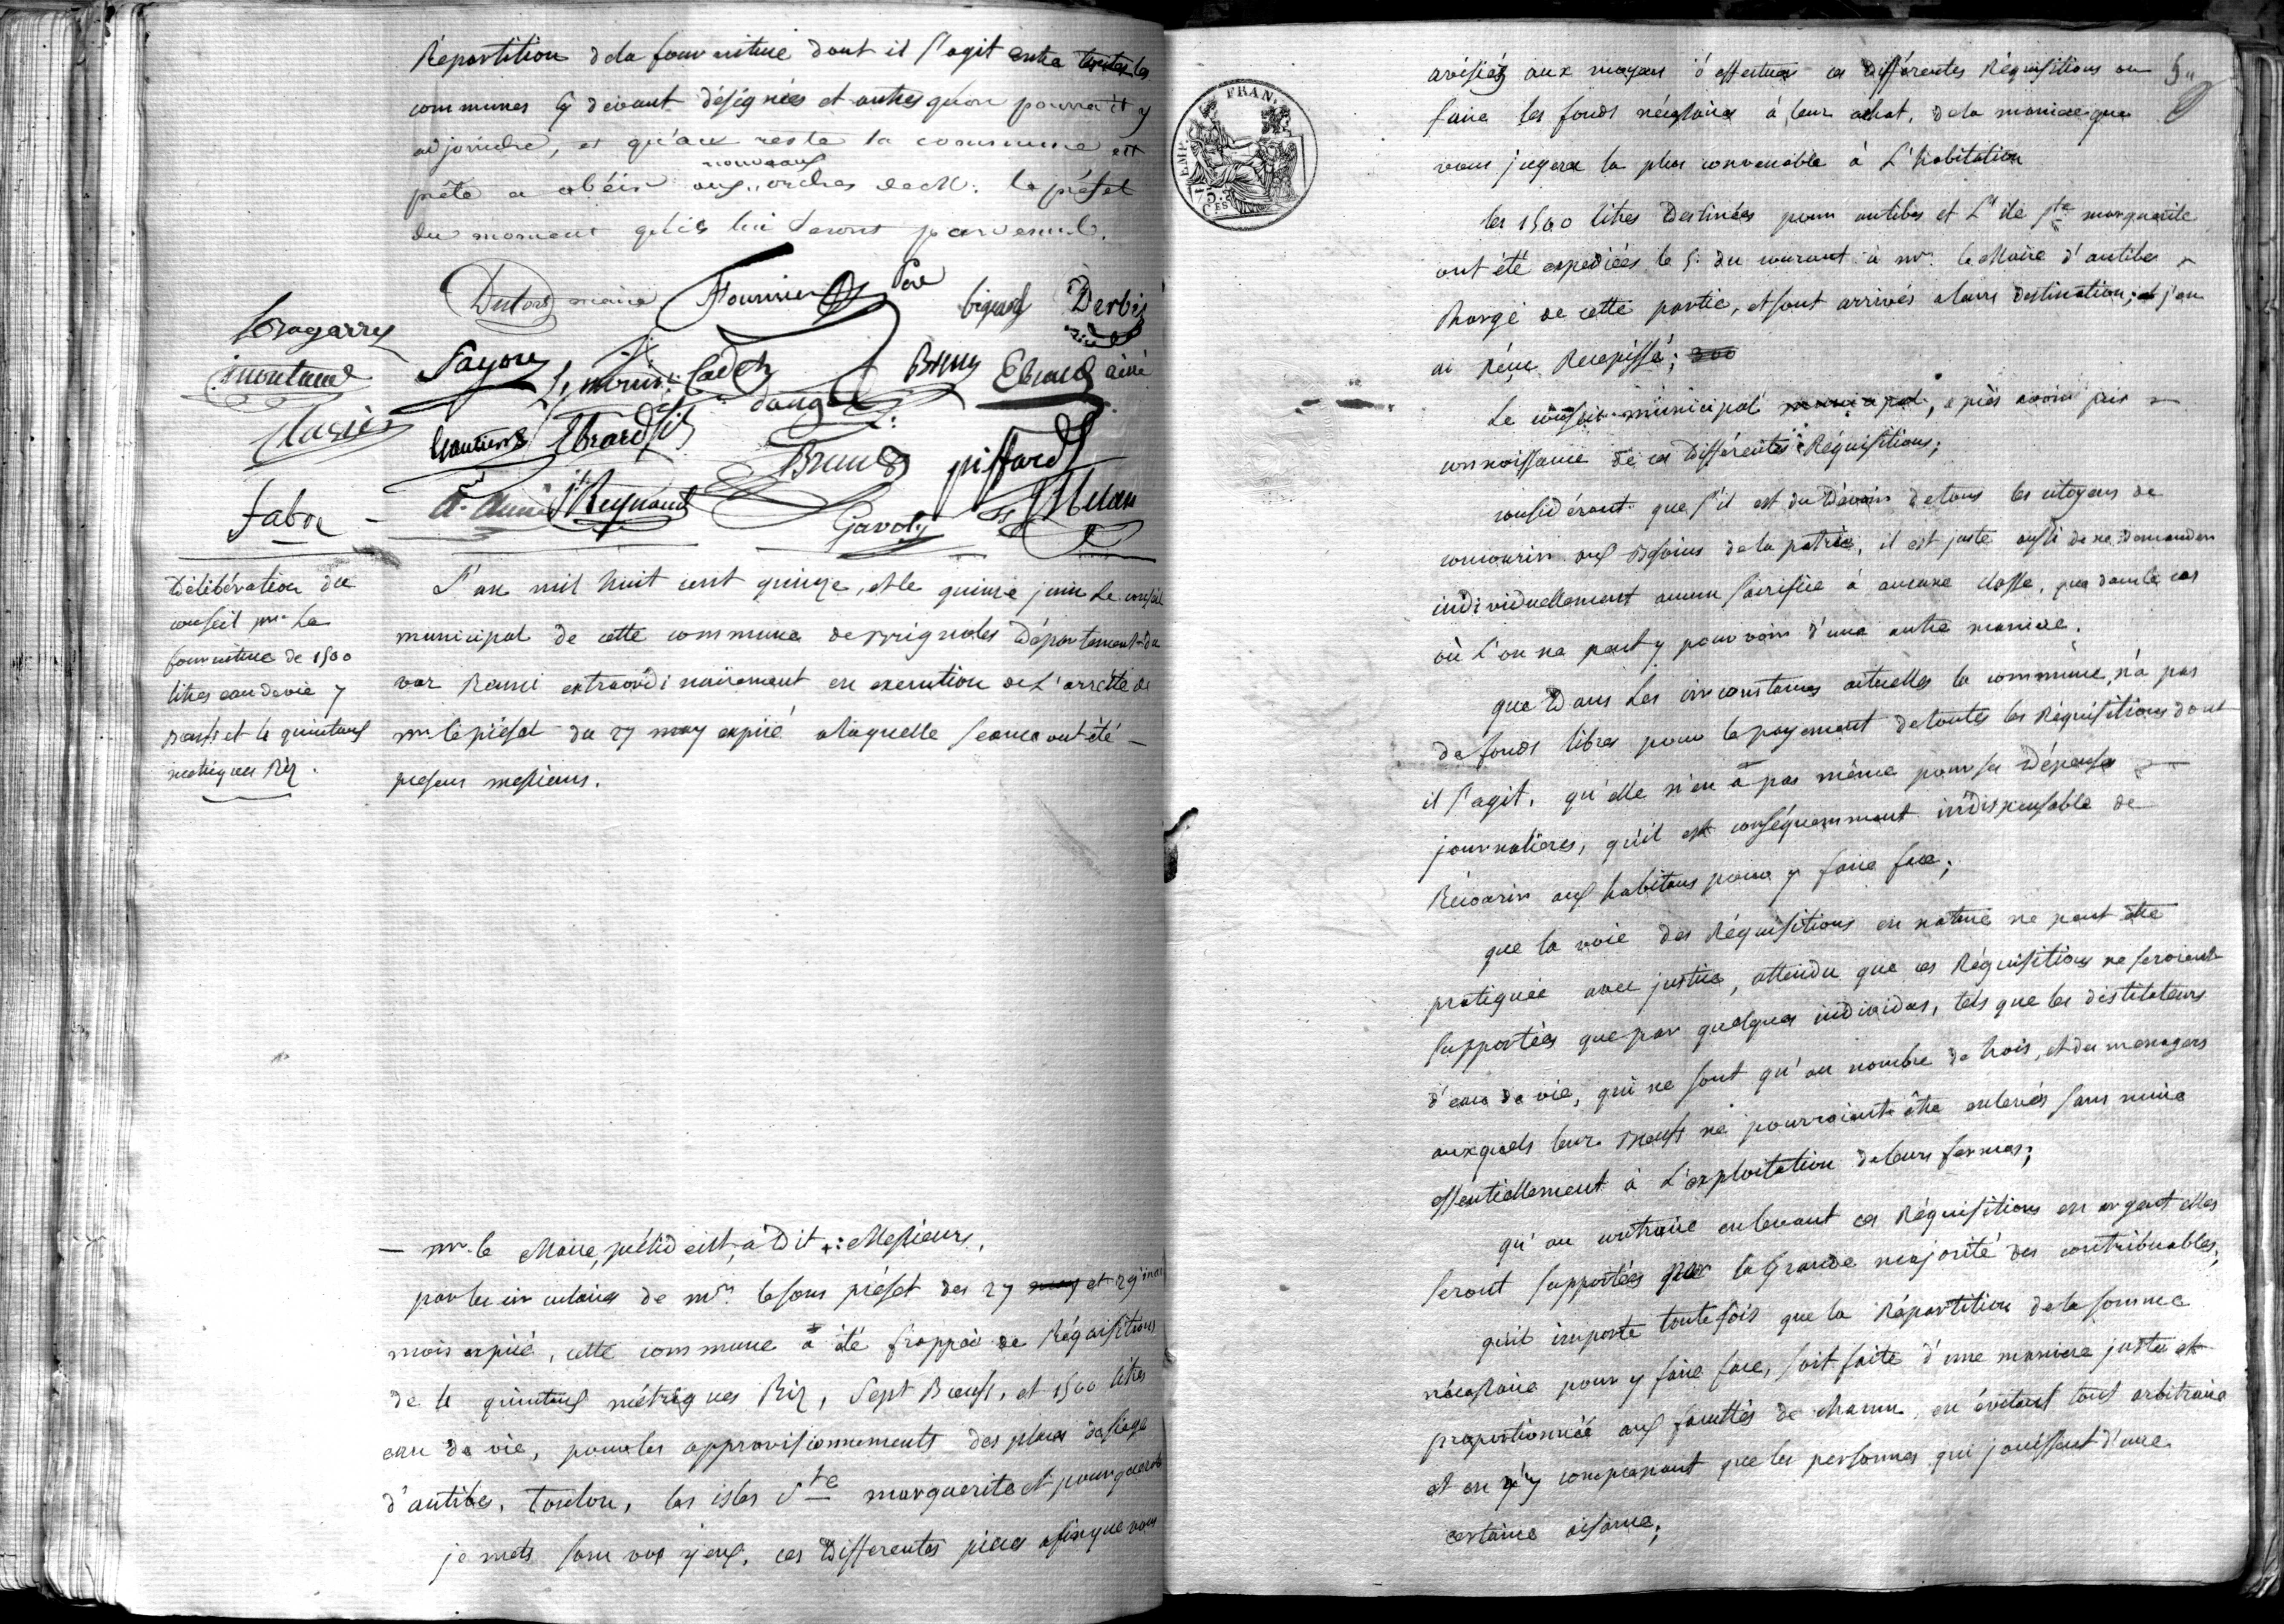 Répartition dela fourniture dont il s'agit entre toutes les
communes cy devant désignées et autres qu'on pourroit y
adjoindre, et qu'au reste la commune est
prête a obéir aux nouveaux ordres de M. le préfet
du moment qu'ils lui seront parvenus.
maire Fournier
Derbès
Fayon
Ebrard ainé
Ebrard fils
Brun piffard
Reynaud
Gavoty
fabre
Délibération du
conseil pour La
fourniture de 1500
litres eau de vie 7
Bœufs et 4 quintaux
métriques Riz.
L'an mil huit cent quinze, et le quinze juin Le conseil
municipal de cette commune de Brignoles Département du
var Reuni extraordinairement en execution de L'arrêté de
mr. le préfet du 27 may expiré a laquelle seance ont été
presens messieurs.
— mr. le Maire, président, a Dit : Messieurs,
par les circulaires de mr. le sous préfet des 27 may et 29
mois expiré, cette commune a été frappée de Réquisitions
de 4 quintaux métriques Riz, Sept Bœufs, et 1500 litres
eau de vie, pour les approvisionnements des places de siège
d'antibes, Toulon, les isles Ste marguerite et pourquerolle
je mets sous vos yeux, ces Differentes pieces afin que vous
EMP. FRAN.
75 Ces
avisiés aux moyens d'effectuer ces différentes Réquisitions ou
faire les fonds nécessaires à leur achat, dela maniere que
vous jugerez la plus convenable à L'habitation
les 1500 litres Destinées pour antibes et L'ile Ste marguerite
ont été expediées le 5. du courant à mr. le Maire d'antibes
chargé de cette partie, et sont arrivés a leurs destination; et j'en
ai Réçu Recepissé; 300
Le conseil municipal municipal, après avoir pris
connoissance de ces Différentes Réquisitions;
considérant que s'il est du Devoir de tous les citoyens de
concourir aux Besoins de la patrie, il est juste aussi de ne Demander
individuellement aucun sacrifice à aucune classe, que dans le cas
où L'on ne peut y pourvoir d'une autre maniere.
que Dans Les circonstances actuelles la commune, n'a pas
de fonds libres pour le payement de toutes les Réquisitions dont
il s'agit, qu'elle n'en a pas même pour ses Dépenses
journalieres, qu'il est conséquemment indispensable de
Récourir aux habitans pour y faire face;
que la voie des Réquisitions en nature ne peut être
pratiquée avec justice, attendu que ces Réquisitions ne seroient
supportées que par quelques individus, tels que les distilateurs
d'eau de vie, qui ne sont qu'au nombre de trois, et des menagers
auxquels leurs Bœufs ne pourroient être enlevés sans nuire
essentiellement à L'exploitation de leurs fermes;
qu'au contraire en levant ces Réquisitions en argent elles
seront supportées par la Grande majorité des contribuables;
qu'il importe toutefois que la Répartition de la somme
nécessaire pour y faire face, soit faite d'une maniere juste et
proportionnée aux facultés de chacun, en évitant tout arbitraire
et en n'y comprenant que les personnes qui jouissent d'une
certaine aisance;